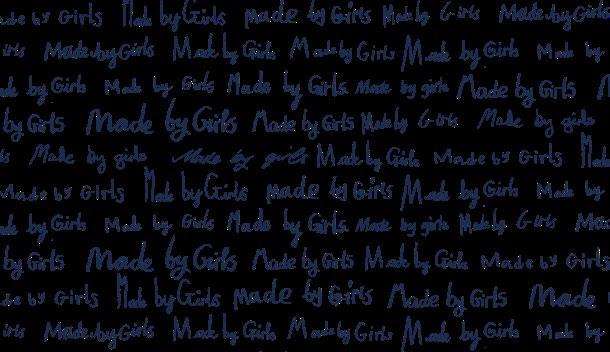 ade by Girls Made by Girls made by Girls Made by Girls Made by Girls
irls Made by Girls Made by Girls Made by Girls Made by Girls Made by
ade by Girls Made by Girls Made by Girls Made by girls Made by Girls M
by Girls Made by Girls Made by Girls Made by Girls Made by girls
ls Made by girls Made by girls Made by Girls Made by Girls Made
Made by Girls Made by Girls made by Girls Made by Girls Made by
ade by Girls Made by Girls Made by Girls Made by girls Made by Girls Made
by Girls Made by Girls Made by Girls Made by Girls Made by Girls
de by Girls Made by Girls made by Girls Made by Girls Made
irls Made by Girls Made by Girls Made by Girls Made by Girls Made by